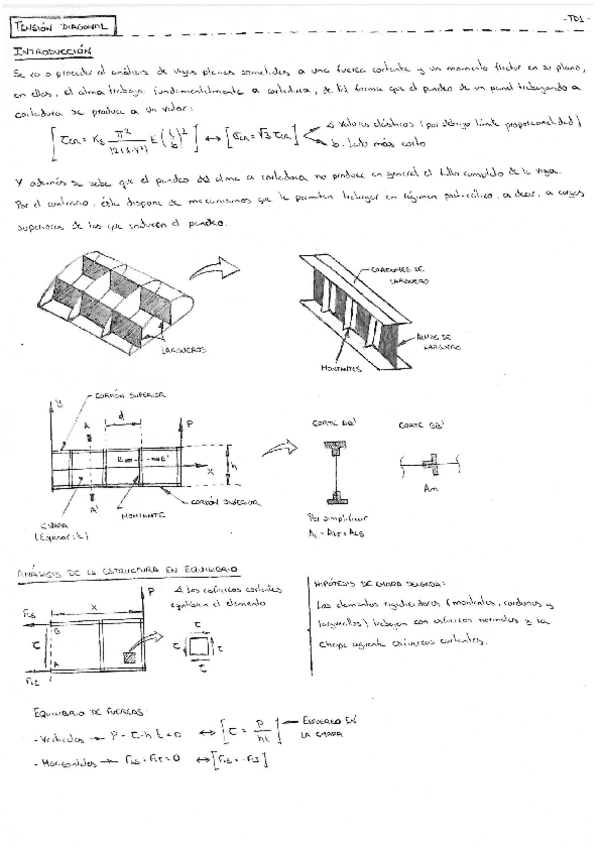 TENSIÓN DIAGONAL
- TD1 -
INTRODUCCIÓN
Se va a proceder al análisis de vigas planas sometidas a una fuerza cortante y un momento flector en su plano,
en ellas, el alma trabaja fundamentalmente a cortadura, de tal forma que el pandeo de un panel trabajando a
cortadura se produce a un valor:
[τCR = Ks π²/12(1-ν²) E (t/b)²] ↔ [σCR = √3 τCR]
Δ Valores elásticos (por debajo límite proporcionalidad)
b. Lado más corto
Y además se sabe que el pandeo del alma a cortadura no produce en general el fallo completo de la viga.
Por el contrario, ésta dispone de mecanismos que le permiten trabajar en régimen post-crítico, es decir, a cargas
superiores de las que inducen el pandeo.
CORDONES DE
LARGUERO
LARGUEROS
ALMAS DE
LARGUERO
MONTANTES
CORDÓN SUPERIOR
y
A
d
P
B
B'
x
h
A'
CORDÓN SUPERIOR
CHAPA
(Espesor: t)
MONTANTE
CORTE
CORTE BB'
Por simplificar
Am
ANÁLISIS DE LA ESTRUCTURA EN EQUILIBRIO
Δ Los esfuerzos cortantes
equilibran el elemento
P
x
FLS
B
τ
A
FLI
τ
τ
τ
τ
HIPÓTESIS DE CHAPA DELGADA:
Los elementos rigidizadores (montantes, cordones y
larguerillos) trabajan con esfuerzos normales y la
chapa aguanta esfuerzos cortantes.
EQUILIBRIO DE FUERZAS:
- Verticales → P - τ·h t = 0 ↔ [τ = P/ht] ESFUERZO EN
LA CHAPA
- Horizontales → FLS + FLI = 0 ↔ [FLS = -FLI]